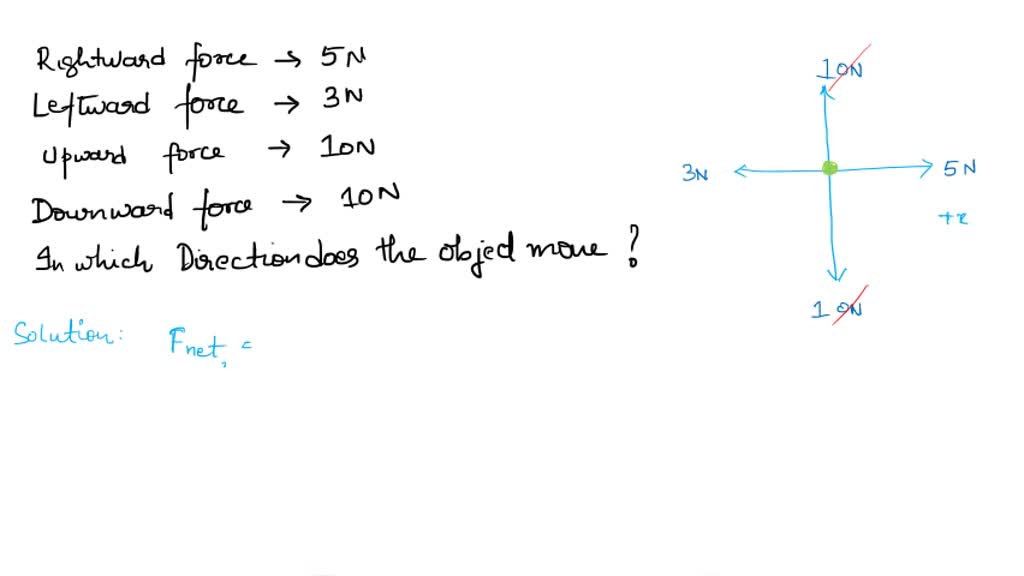 Rightward force → 5N
Leftward force → 3N
Upward force → 10N
Downward force → 10N
In which Direction does the object move ?
Solution: Fnet, =
10N
3N
5N
+x
10N